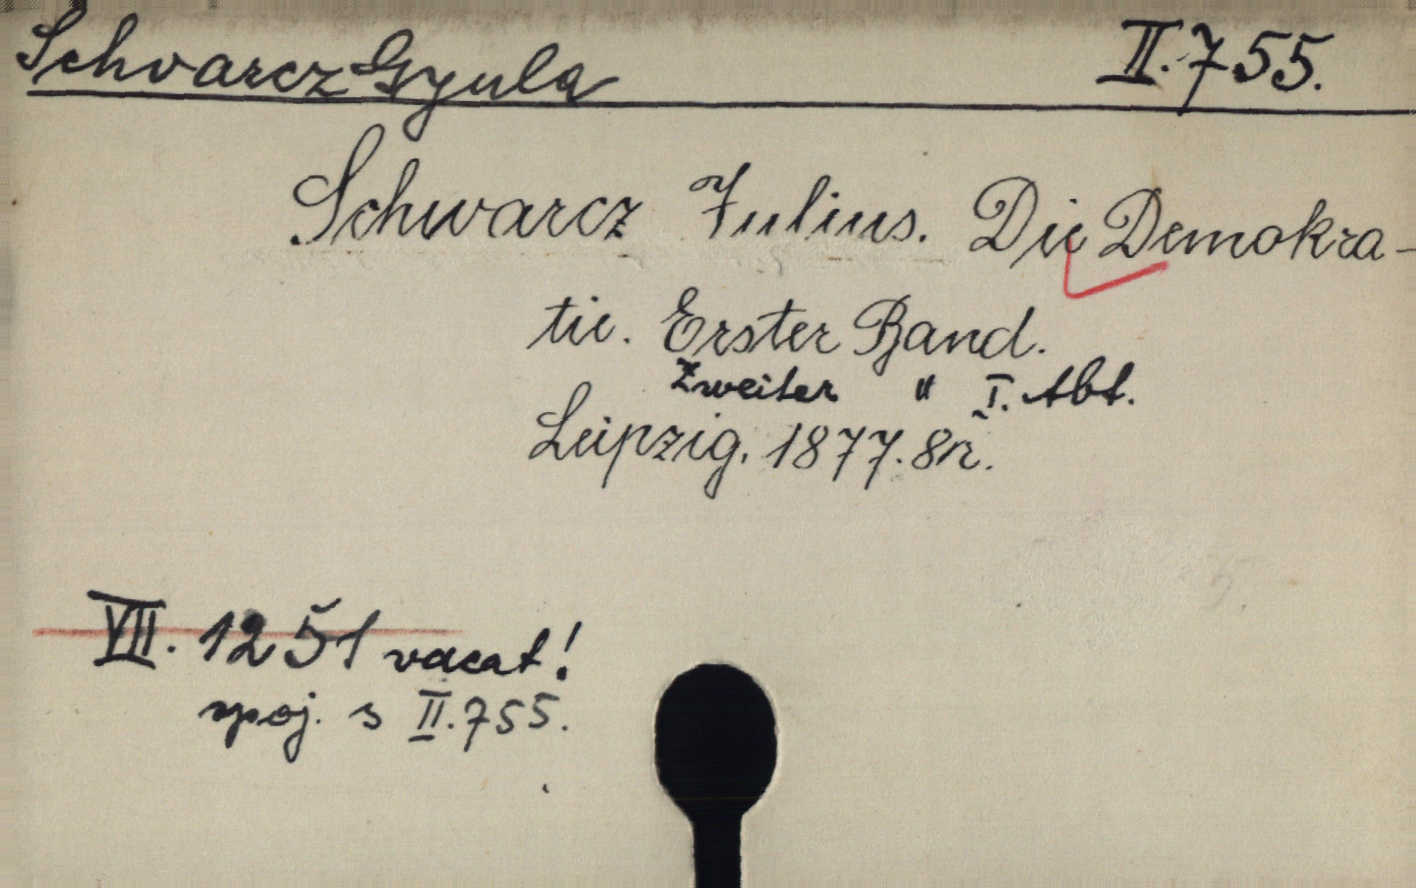 Schvarcz Gyula II. 755.
Schwarcz Julius. Die Demokra-
tie. Erster Band.
Zweiter " I. Abt.
Leipzig. 1877. 8r.
VII. 1251 vacat!
spoj. s II. 755.